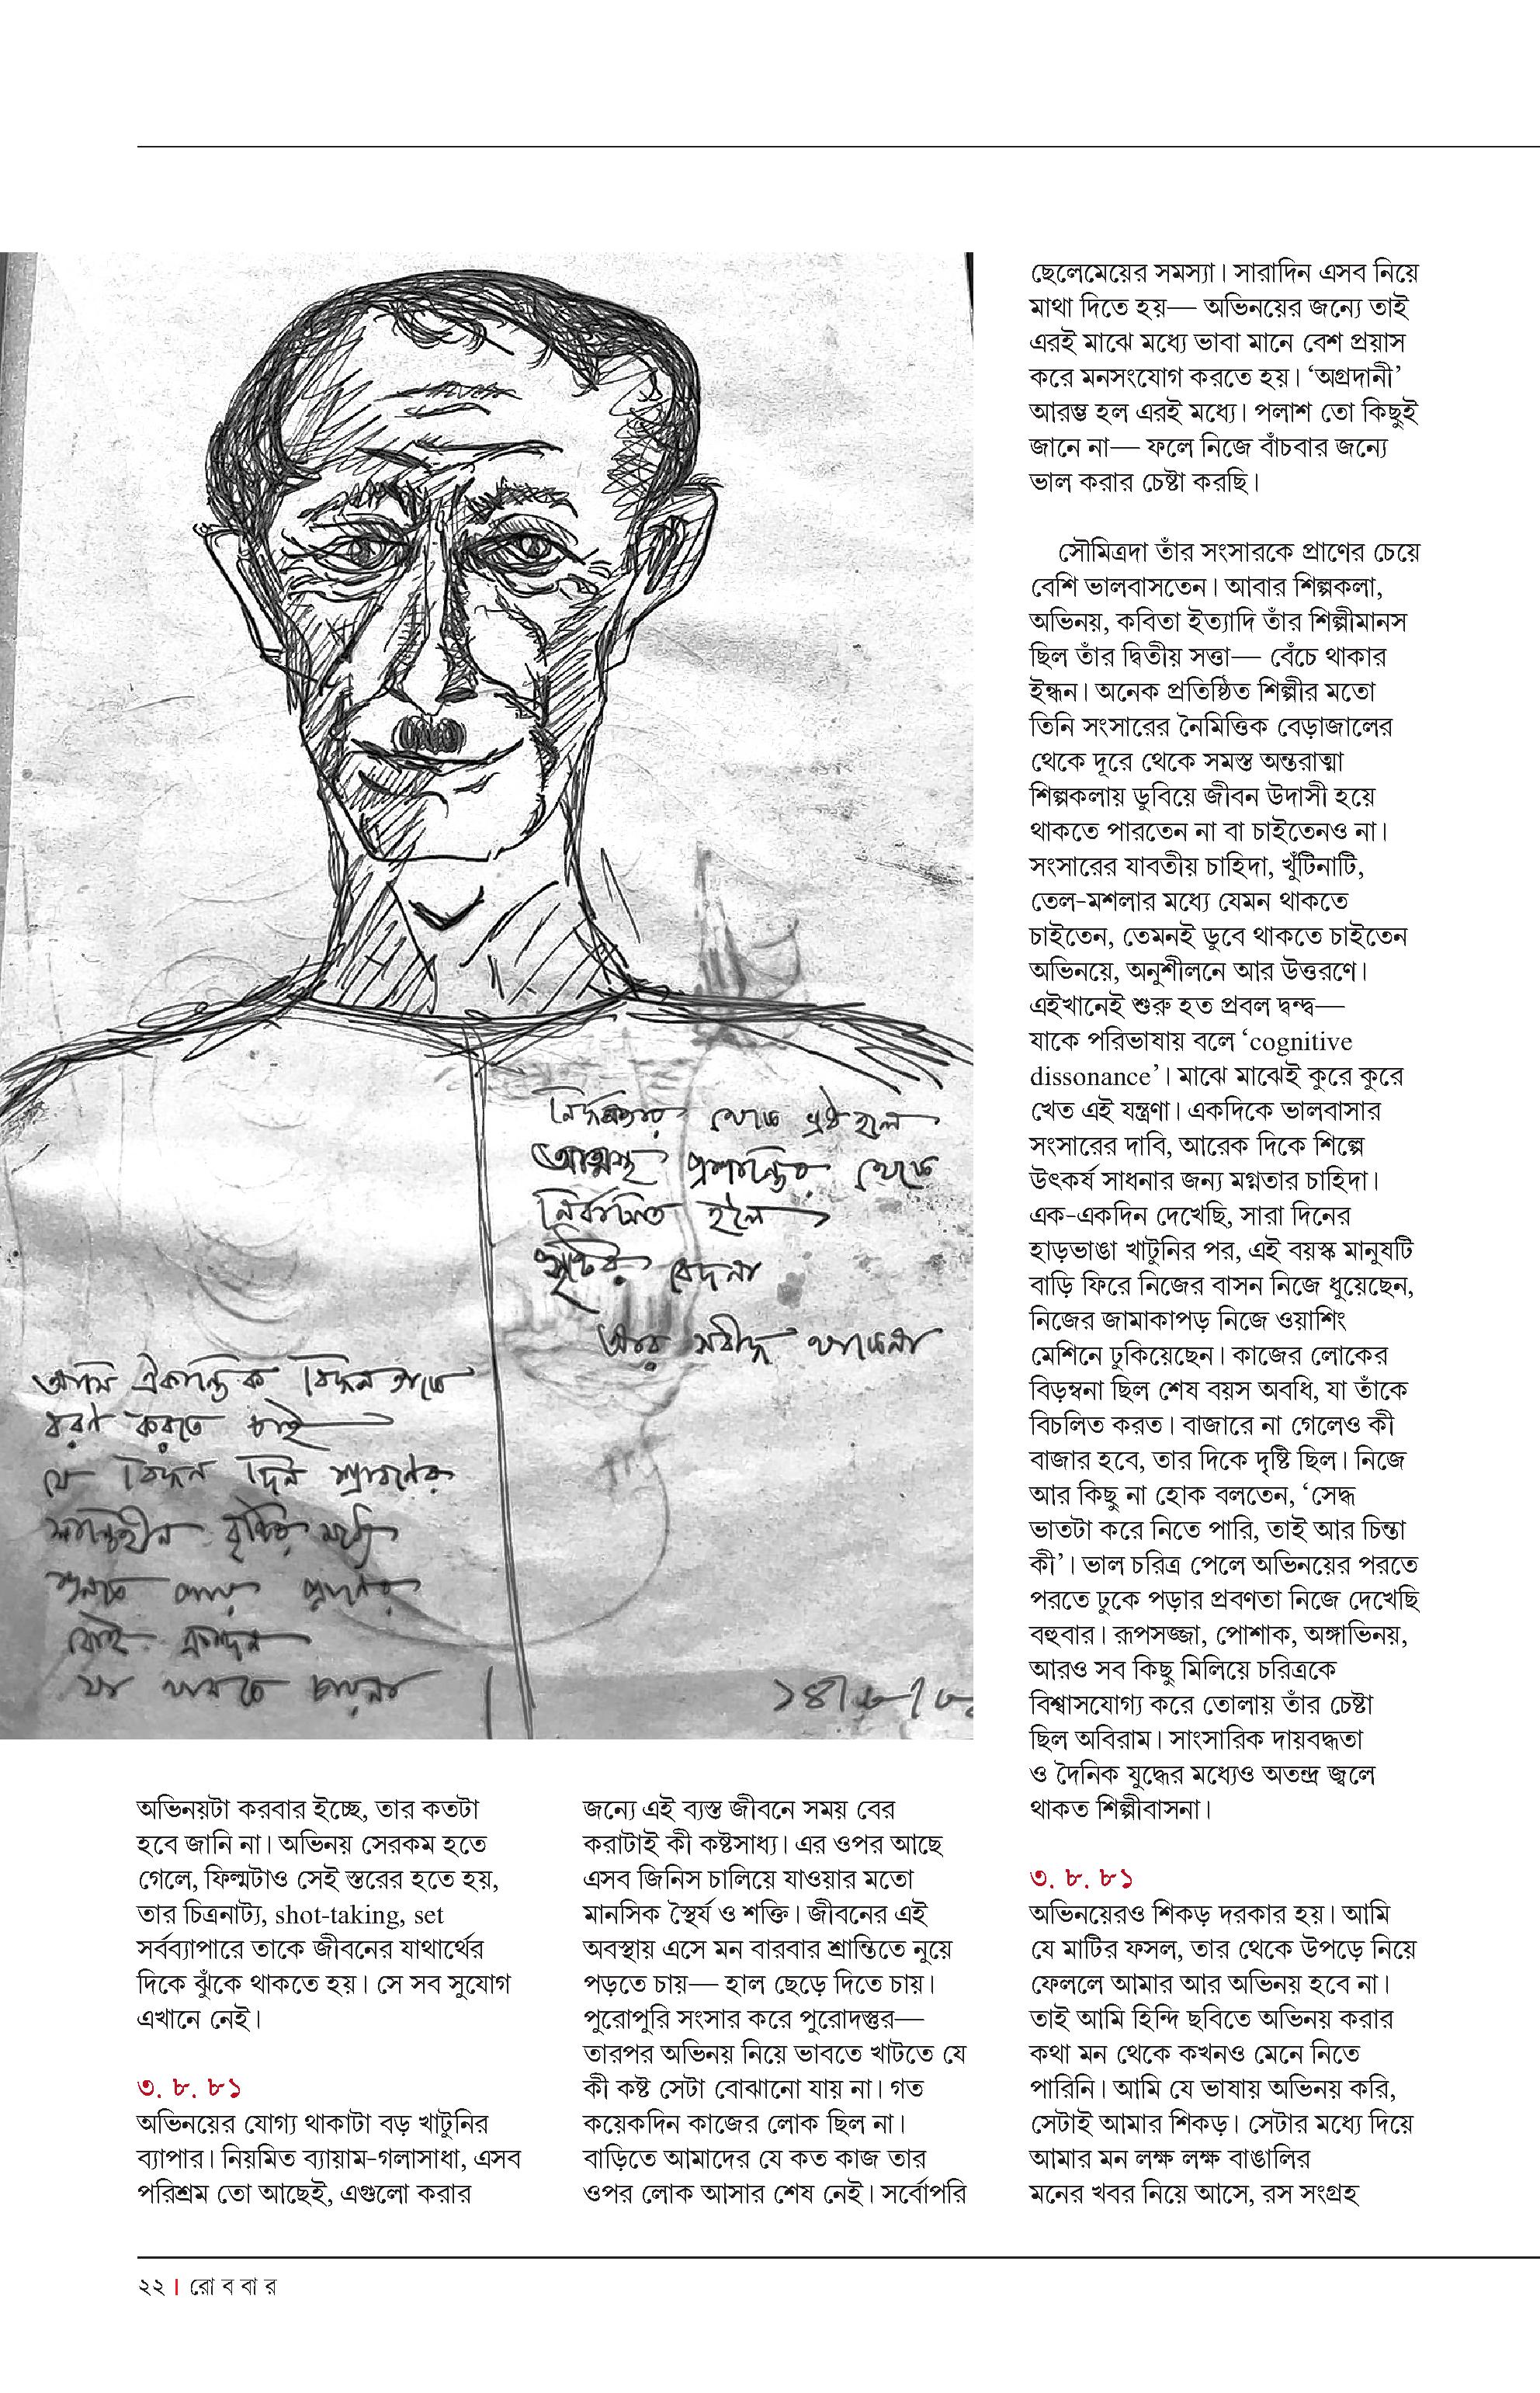 নির্দয়তার থেকে ভ্রষ্ট হলে
আত্মস্থ প্রশান্তির থেকে
নির্বাসিত হলে
সৃষ্টির বেদনা
আর সজীব থাকেনা
আমি ঐকান্তিক
বরণ করতে চাই
যে দিন শ্রাবণের
শান্তিহীন বৃষ্টির মধ্যে
শুনতে পায় প্রাণের
সেই একদিন
যা থামতে চায়না
অভিনয়টা করবার ইচ্ছে, তার কতটা
হবে জানি না। অভিনয় সেরকম হতে
গেলে, ফিল্মটাও সেই স্তরের হতে হয়,
তার চিত্রনাট্য, shot-taking, set
সর্বব্যাপারে তাকে জীবনের যাথার্থের
দিকে ঝুঁকে থাকতে হয়। সে সব সুযোগ
এখানে নেই।
৩. ৮. ৮১
অভিনয়ের যোগ্য থাকাটা বড় খাটুনির
ব্যাপার। নিয়মিত ব্যায়াম-গলাসাধা, এসব
পরিশ্রম তো আছেই, এগুলো করার
জন্যে এই ব্যস্ত জীবনে সময় বের
করাটাই কী কষ্টসাধ্য। এর ওপর আছে
এসব জিনিস চালিয়ে যাওয়ার মতো
মানসিক স্থৈর্য ও শক্তি। জীবনের এই
অবস্থায় এসে মন বারবার শ্রান্তিতে নুয়ে
পড়তে চায়— হাল ছেড়ে দিতে চায়।
পুরোপুরি সংসার করে পুরোদস্তুর—
তারপর অভিনয় নিয়ে ভাবতে খাটতে যে
কী কষ্ট সেটা বোঝানো যায় না। গত
কয়েকদিন কাজের লোক ছিল না।
বাড়িতে আমাদের যে কত কাজ তার
ওপর লোক আসার শেষ নেই। সর্বোপরি
ছেলেমেয়ের সমস্যা। সারাদিন এসব নিয়ে
মাথা দিতে হয়— অভিনয়ের জন্যে তাই
এরই মাঝে মধ্যে ভাবা মানে বেশ প্রয়াস
করে মনসংযোগ করতে হয়। ‘অগ্রদানী’
আরম্ভ হল এরই মধ্যে। পলাশ তো কিছুই
জানে না— ফলে নিজে বাঁচবার জন্যে
ভাল করার চেষ্টা করছি।
সৌমিত্রদা তাঁর সংসারকে প্রাণের চেয়ে
বেশি ভালবাসতেন। আবার শিল্পকলা,
অভিনয়, কবিতা ইত্যাদি তাঁর শিল্পীমানস
ছিল তাঁর দ্বিতীয় সত্তা— বেঁচে থাকার
ইন্ধন। অনেক প্রতিষ্ঠিত শিল্পীর মতো
তিনি সংসারের নৈমিত্তিক বেড়াজালের
থেকে দূরে থেকে সমস্ত অন্তরাত্মা
শিল্পকলায় ডুবিয়ে জীবন উদাসী হয়ে
থাকতে পারতেন না বা চাইতেনও না।
সংসারের যাবতীয় চাহিদা, খুঁটিনাটি,
তেল-মশলার মধ্যে যেমন থাকতে
চাইতেন, তেমনই ডুবে থাকতে চাইতেন
অভিনয়ে, অনুশীলনে আর উত্তরণে।
এইখানেই শুরু হত প্রবল দ্বন্দ্ব—
যাকে পরিভাষায় বলে ‘cognitive
dissonance’। মাঝে মাঝেই কুরে কুরে
খেত এই যন্ত্রণা। একদিকে ভালবাসার
সংসারের দাবি, আরেক দিকে শিল্পে
উৎকর্ষ সাধনার জন্য মগ্নতার চাহিদা।
এক-একদিন দেখেছি, সারা দিনের
হাড়ভাঙা খাটুনির পর, এই বয়স্ক মানুষটি
বাড়ি ফিরে নিজের বাসন নিজে ধুয়েছেন,
নিজের জামাকাপড় নিজে ওয়াশিং
মেশিনে ঢুকিয়েছেন। কাজের লোকের
বিড়ম্বনা ছিল শেষ বয়স অবধি, যা তাঁকে
বিচলিত করত। বাজারে না গেলেও কী
বাজার হবে, তার দিকে দৃষ্টি ছিল। নিজে
আর কিছু না হোক বলতেন, ‘সেদ্ধ
ভাতটা করে নিতে পারি, তাই আর চিন্তা
কী’। ভাল চরিত্র পেলে অভিনয়ের পরতে
পরতে ঢুকে পড়ার প্রবণতা নিজে দেখেছি
বহুবার। রূপসজ্জা, পোশাক, অঙ্গাভিনয়,
আরও সব কিছু মিলিয়ে চরিত্রকে
বিশ্বাসযোগ্য করে তোলায় তাঁর চেষ্টা
ছিল অবিরাম। সাংসারিক দায়বদ্ধতা
ও দৈনিক যুদ্ধের মধ্যেও অতন্দ্র জ্বলে
থাকত শিল্পীবাসনা।
৩. ৮. ৮১
অভিনয়েরও শিকড় দরকার হয়। আমি
যে মাটির ফসল, তার থেকে উপড়ে নিয়ে
ফেললে আমার আর অভিনয় হবে না।
তাই আমি হিন্দি ছবিতে অভিনয় করার
কথা মন থেকে কখনও মেনে নিতে
পারিনি। আমি যে ভাষায় অভিনয় করি,
সেটাই আমার শিকড়। সেটার মধ্যে দিয়ে
আমার মন লক্ষ লক্ষ বাঙালির
মনের খবর নিয়ে আসে, রস সংগ্রহ
২২ | রো ব বা র